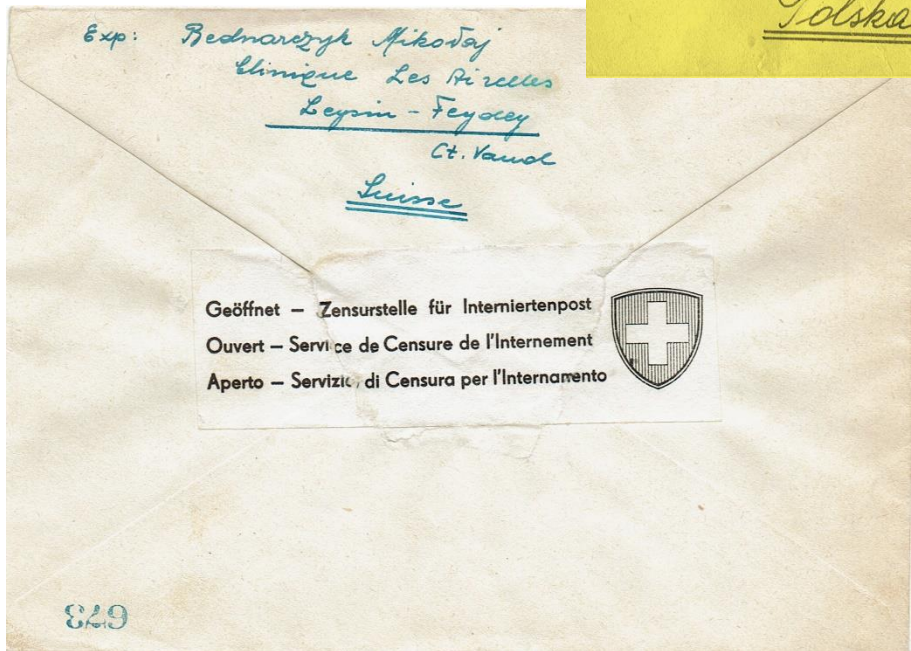 Polska
Exp: Bednarczyk Mikołaj
Clinique Les Airelles
Leysin - Feydey
Ct. Vaud
Suisse
Geöffnet – Zensurstelle für Interniertenpost
Ouvert – Service de Censure de l'Internement
Aperto – Servizio di Censura per l'Internamento
673